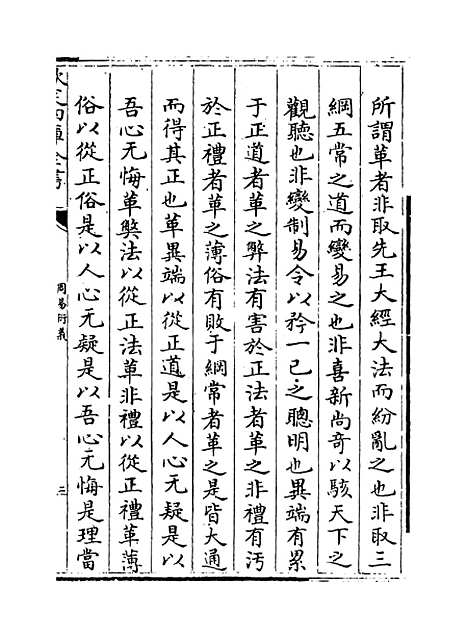 所謂革者非取先王大經大法而紛亂之也非取三
綱五常之道而變易之也非喜新尚奇以駭天下之
觀聽也非變制易令以矜一己之聰明也異端有累
于正道者革之弊法有害於正法者革之非禮有汚
於正禮者革之薄俗有敗于綱常者革之是皆大通
而得其正也革異端以從正道是以人心无疑是以
吾心无悔革弊法以從正法革非禮以從正禮革薄
俗以從正俗是以人心无疑是以吾心无悔是理當
欽定四庫全書
周易衍義
三